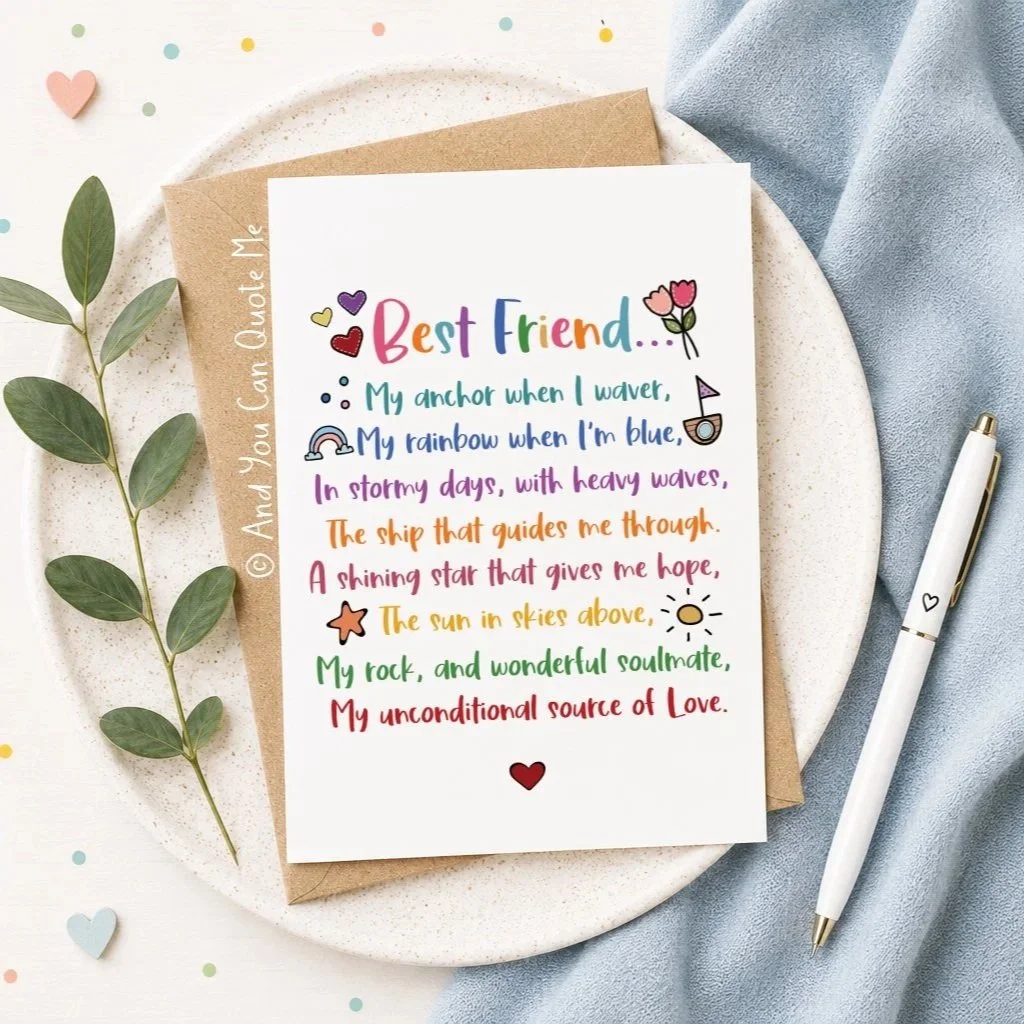 Best Friend...
My anchor when I waver,
My rainbow when I'm blue,
In stormy days, with heavy waves,
The ship that guides me through.
A shining star that gives me hope,
The sun in skies above,
My rock, and wonderful soulmate,
My unconditional source of Love.
© And You Can Quote Me